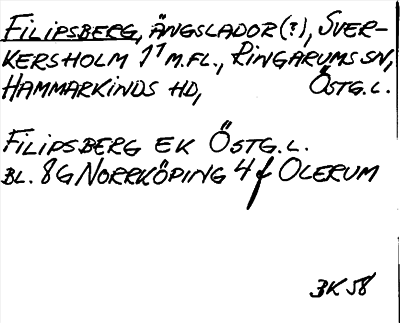 FILIPSBERG, ÄNGSLADOR(?), SVER-
KERSHOLM 1¹ M.FL., RINGARUMS SN,
HAMMARKINDS HD, ÖSTG.L.
FILIPSBERG EK ÖSTG.L.
BL. 8G NORRKÖPING 4 f OLERUM
3K58